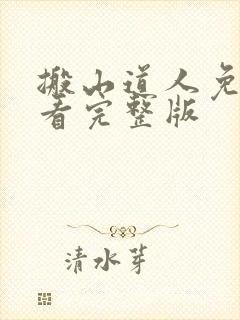 搬山道人免
看完整版
清水芽